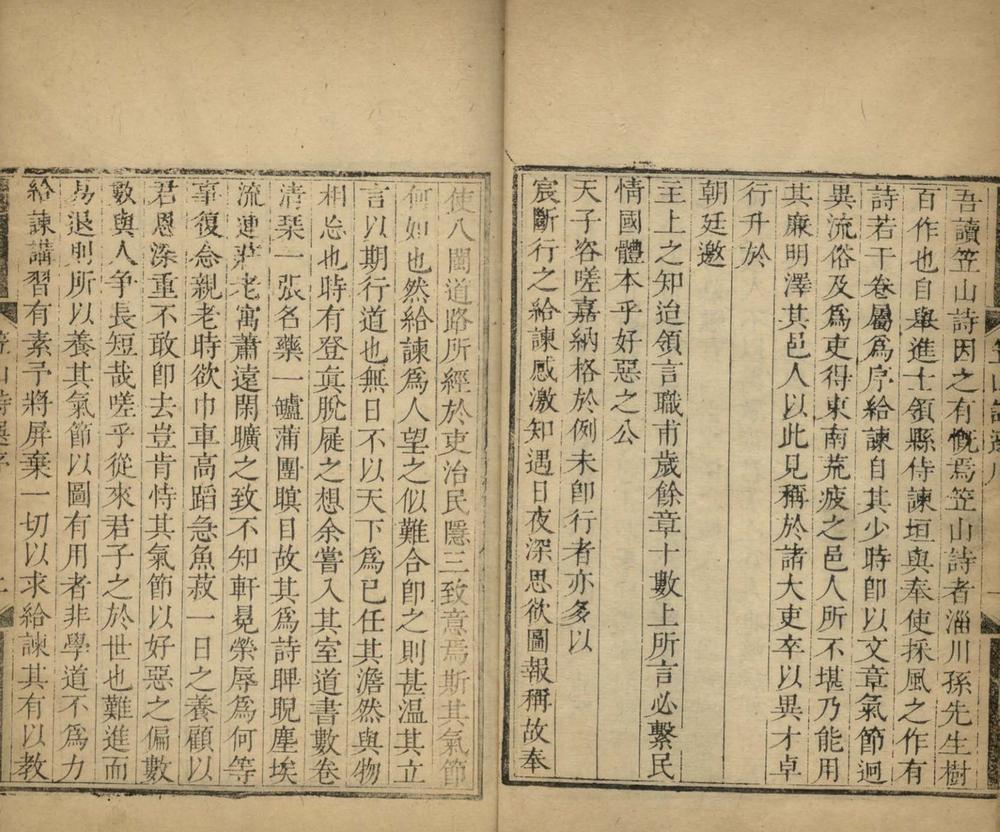 吾讀笠山詩因之有慨焉笠山詩者淄川孫先生樹
百作也自舉進士領縣侍諫垣與奉使採風之作有
詩若干卷屬為序給諫自其少時即以文章氣節迥
異流俗及為吏得東南荒疲之邑人所不堪乃能用
其廉明澤其邑人以此見稱於諸大吏卒以異才卓
行升於
朝廷邀
主上之知迨領言職甫歲餘章十數上所言必繫民
情國體本乎好惡之公
天子咨嗟嘉納格於例未即行者亦多以
宸斷行之給諫感激知遇日夜深思欲圖報稱故奉
使八閩道路所經於吏治民隱三致意焉斯其氣節
何如也然給諫為人望之似難合即之則甚温其立
言以期行道也無日不以天下為已任其澹然與物
相忘也時有登眞脫屣之想余嘗入其室道書數卷
清琹一張名藥一鑪蒲團瞑目故其為詩睥睨塵埃
流連莊老寓蕭遠閑曠之致不知軒冕榮辱為何等
事復念親老時欲巾車高蹈急魚菽一日之養顧以
君恩深重不敢即去豈肯恃其氣節以好惡之偏數
數與人争長短哉嗟乎從來君子之於世也難進而
易退則所以養其氣節以圖有用者非學道不為力
給諫講習有素予將屏棄一切以求給諫其有以教
笠山詩選序
二